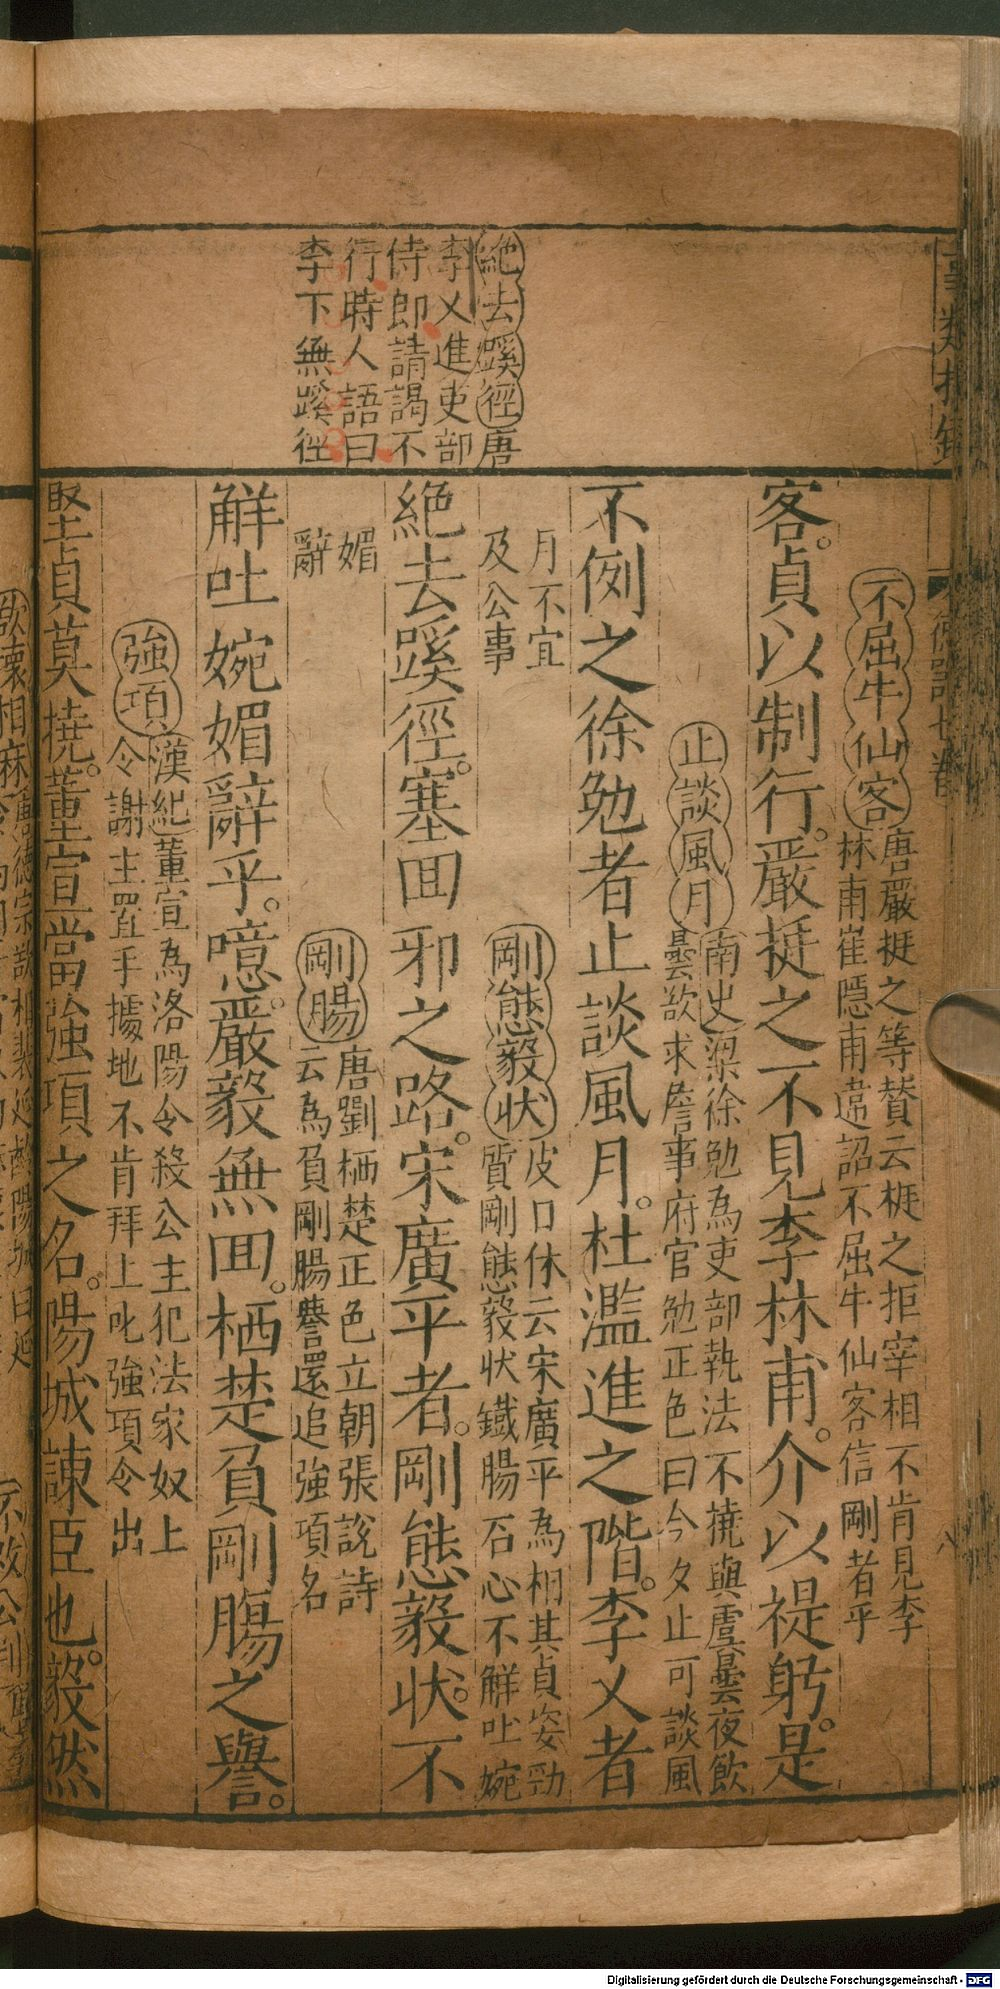 絶去蹊徑唐
李乂進吏部
侍郎請謁不
行時人語曰
李下無蹊徑
不屈牛仙客
唐嚴挺之等賛云挺之拒宰相不肯見李
林甫崔隱甫違詔不屈牛仙客信剛者乎
客。貞以制行。嚴挺之不見李林甫。介以禔躬。是
止談風月
南史梁徐勉為吏部執法不撓與虞暠夜飲
曇欲求詹事府官勉正色曰今夕止可談風
不例之徐勉者止談風月。杜濫進之階。李乂者
月不宜
及公事
剛態毅狀
皮日休云宋廣平為相其貞姿勁
質剛態毅狀鐵腸石心不觧吐婉
絶去蹊徑。塞囬邪之路。宋廣平者。剛態毅狀。不
媚
辭
剛腸
唐劉栖楚正色立朝張說詩
云為負剛腸譽還追強項名
觧吐婉媚辭乎。噫。嚴毅無囬。栖楚負剛腸之譽。
強項
漢紀董宣為洛陽令殺公主犯法家奴上
令謝主置手據地不肯拜上叱強項令出
堅貞莫撓。董宣當強項之名。陽城諫臣也。毅然
Digitalisierung gefördert durch die Deutsche Forschungsgemeinschaft - DFG